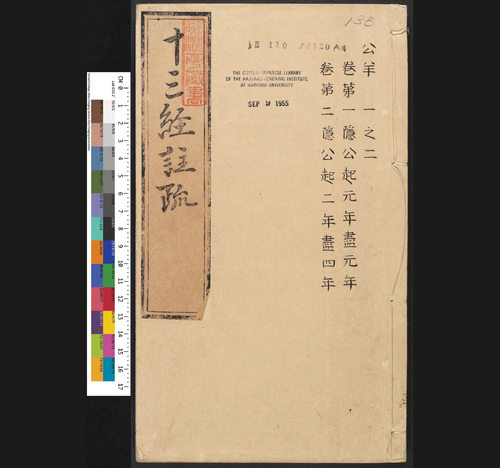 138
SEP 9 1955
THE CHINESE-JAPANESE LIBRARY
OF THE HARVARD-YENCHING INSTITUTE
AT HARVARD UNIVERSITY
公羊 一之二
卷第一隱公起元年盡元年
卷第二隱公起二年盡四年
十三經註疏
CM 0 1 2 3 4 5 6 7 8 9 10 11 12 13 14 15 16 17